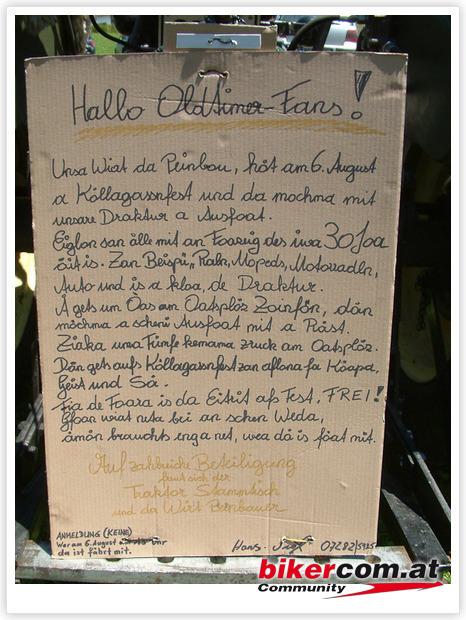 Hallo Oldtimer-Fans!
Unsa Wiat da Peinbau, hôt am 6. August
a Köllagassnfest und da mochma mit
unsare Draktur a Ausfoat.
san alle mit an Foazig des iwa 30 Joa
ait is. Zan Beispü, Radln, Mopeds, Motorradln,
Auto und is a kloa, de Draktur.
A gets um Oas am Oatsplôz
môchma a schene Ausfoat mit a Rast.
Ziaka uma Fünfe kemama zruck am Oatsplôz.
Dân gets aufs Köllagassnfest zan
Geist und Sö.
Fia de Foara is da Eitrit afs Fest, FREI!
Gfoan wiat nuta bei an schen Weda,
âmôn brauchts enga net, wea dâ is föat mit.
Auf zahlreiche Beteiligung
freut sich der
Traktor Stammtisch
und der Wirt Beinbauer
ANMELDUNG (KEINE)
Wer am 6. August um 13 Uhr
da ist fährt mit.
Hans- 07282/5925
bikercom.at
Community